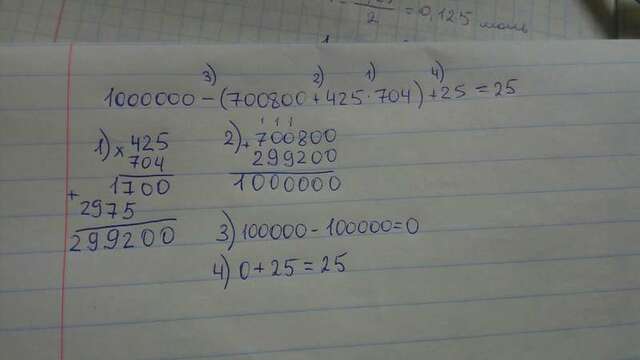 2 = 0,125 моль
3) 2) 1) 4)
1000000 - (700800 + 425 · 704) + 25 = 25
1) × 425
704
+ 1700
2975
299200
1 1 1
2) + 700800
299200
1000000
3) 100000 - 100000 = 0
4) 0 + 25 = 25